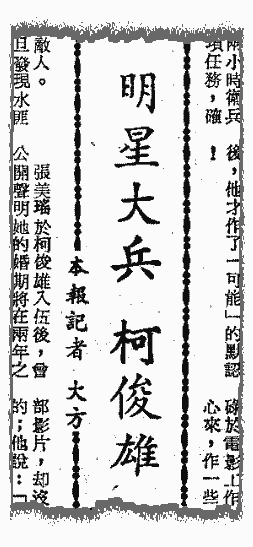 兩小時衛兵
項任務，確
後，他才作了「可能」的默認
！
礙於電影上作
心來，作一些
明星大兵 柯俊雄
本報記者 大方
敵人。
旦發現水匪
張美瑤於柯俊雄入伍後，曾
公開聲明她的婚期將在兩年之
部影片，却沒
的；他說：「